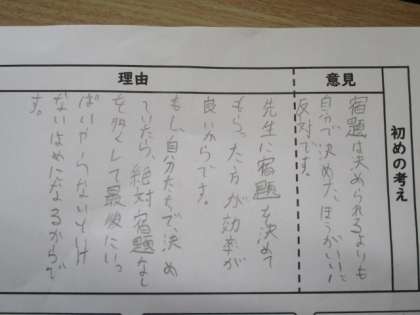 初めの考え
意見
宿題は決められるよりも
自分で決めたほうがいいに
反対です。
理由
先生に宿題を決めて
もらった方が効率が
良いからです。
もし、自分たちで、決め
ていたら、絶対宿題なし
を多くして最後にいっ
ぱいやらないといけ
ないはめになるからで
す。